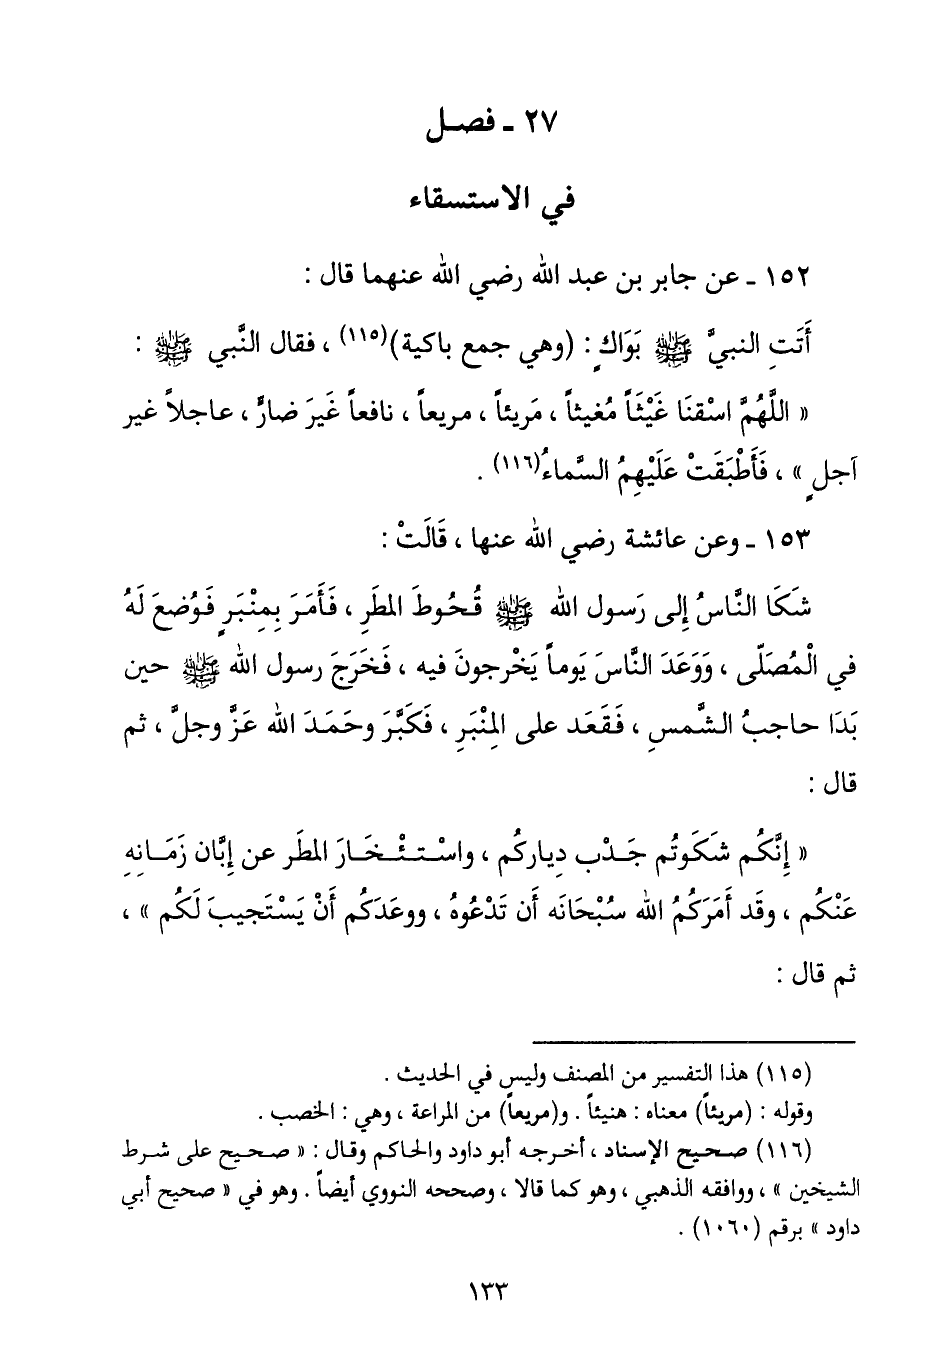 ٢٧ ـ فصـل
في الاستسقاء
١٥٢ ـ عن جابر بن عبد الله رضي الله عنهما قال :
أَتَتِ النبيَّ ﷺ بَوَاكٍ : (وهي جمع باكية)(١١٥) ، فقال النَّبي ﷺ :
« اللَّهُمَّ اسْقنَا غَيْثَاً مُغيثاً ، مَريئاً ، مريعاً ، نافعاً غَيرَ ضارٍّ ، عاجلاً غير
آجلٍ » ، فَأَطْبَقَتْ عَلَيْهِمُ السَّماءُ(١١٦) .
١٥٣ ـ وعن عائشة رضي الله عنها ، قَالَتْ :
شَكَا النَّاسُ إِلى رَسول الله ﷺ قُحُوطَ المطَرِ ، فَأَمَرَ بِمِنْبَرٍ فَوُضعَ لَهُ
في الْمُصَلّى ، وَوَعَدَ النَّاسَ يَوماً يَخْرجونَ فيه ، فَخَرَجَ رسول الله ﷺ حين
بَدَا حاجبُ الشَّمسِ ، فَقَعَد على المِنْبَرِ ، فَكَبَّرَ وحَمَدَ الله عَزَّ وجلَّ ، ثم
قال :
« إِنَّكُم شكَوتُم جَـدْب دِياركُم ، واسْـتـئْـخَـارَ المطَر عن إِبَّان زَمَـانِهِ
عَنْكُم ، وقَد أمَرَكُمُ الله سُبْحَانَه أن تَدْعُوهُ ، ووعَدَكُم أنْ يَسْتَجيبَ لَكُم » ،
ثم قال :
(١١٥) هذا التفسير من المصنف وليس في الحديث .
وقوله : (مريئاً) معناه : هنيئاً . و(مريعاً) من المراعة ، وهي : الخصب .
(١١٦) صـحـيح الإسناد ، أخـرجـه أبو داود والحاكم وقـال : « صـحـيح على شـرط
الشيخين » ، ووافقه الذهبي ، وهو كما قالا ، وصححه النووي أيضاً . وهو في « صحيح أبي
داود » برقم (١٠٦٠) .
١٣٣